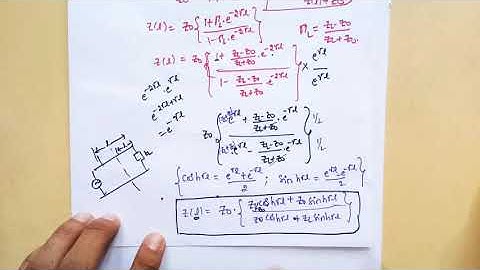 Z(l) = Z0 { 1+ΓL·e^-2γl / 1-ΓL·e^-2γl }
ΓL = ZL-Z0 / ZL+Z0
Z(l) = Z0 { 1 + ZL-Z0/ZL+Z0 e^-2γl / 1 - ZL-Z0/ZL+Z0 e^-2γl } × e^γl / e^γl
e^-2γl · e^γl
e^-2γl+γl
= e^-γl
Z0 { e^γl + ZL-Z0/ZL+Z0 · e^-γl / e^γl - ZL-Z0/ZL+Z0 · e^-γl } 1/2 / 1/2
{ coshγl = e^γl + e^-γl / 2 ; sinhγl = e^γl - e^-γl / 2 }
Z(l) = Z0 · { ZL coshγl + Z0 sinhγl / Z0 coshγl + ZL sinhγl }